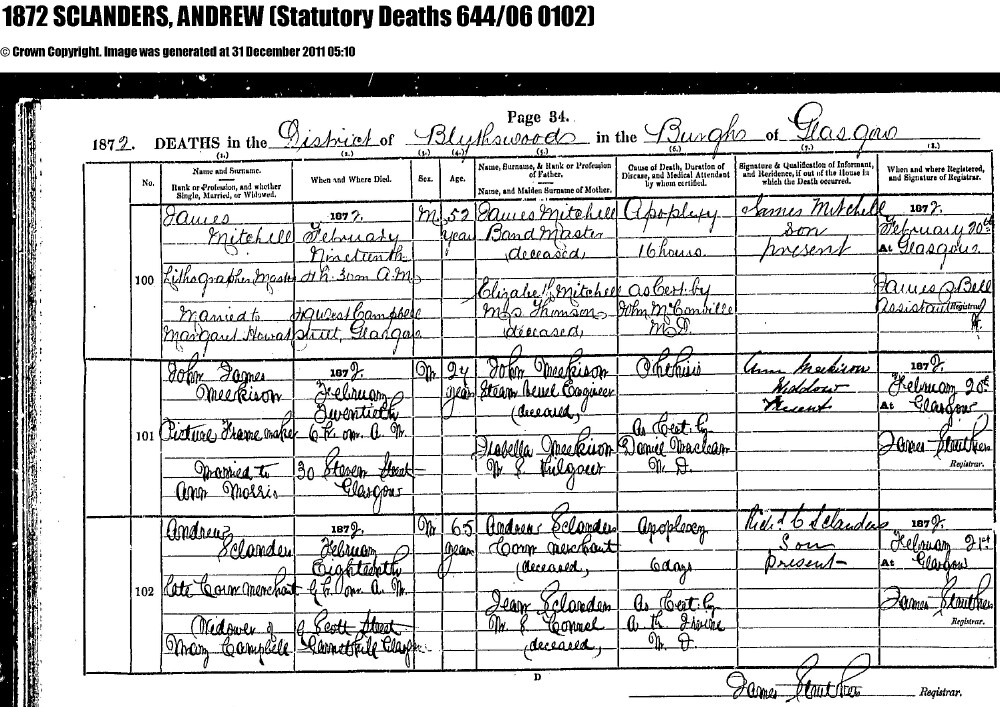 1872 SCLANDERS, ANDREW (Statutory Deaths 644/06 0102)
© Crown Copyright. Image was generated at 31 December 2011 05:10
Page 34.
1872. DEATHS in the District of Blythswood in the Burgh of Glasgow
(1.) (2.) (3.) (4.) (5.) (6.) (7.) (8.)
No.
Name and Surname.
Rank or Profession, and whether Single, Married, or Widowed.
When and Where Died.
Sex.
Age.
Name, Surname, & Rank or Profession of Father.
Name, and Maiden Surname of Mother.
Cause of Death, Duration of Disease, and Medical Attendant by whom certified.
Signature & Qualification of Informant, and Residence, if out of the House in which the Death occurred.
When and where Registered, and Signature of Registrar.
100
James
Mitchell
Lithographer Master
Married to
Margaret Howat
1872.
February
Nineteenth
4h. 30m A.M.
West Campbell
street, Glasgow
M.
52
years
James Mitchell
Band Master
(deceased)
Elizabeth Mitchell
M.S. Thomson
(deceased)
Apoplexy
16 hours.
as Cert. by
John McConville
M.D.
James Mitchell
son
present
1872.
February 20th
At Glasgow
James Bell
Assistant Registrar
101
John James
Meekison
Picture Frame maker
Married to
Ann Morris
1872.
February
Twentieth
6h. 0m. A.M.
30 Steven Street
Glasgow
M.
24
years
John Meekison
Steam Vessel Engineer
(deceased)
Isabella Meekison
M.S. Kilgour
Phthisis
As Cert. by
Daniel Maclean
M.D.
Ann Meekison
Widow
Present
1872.
February 20th
At Glasgow
James Struthers
Registrar.
102
Andrew
Sclanders
late Corn Merchant
Widower of
Mary Campbell
1872.
February
Eighteenth
h. 0m. A.M.
6 Scott Street
Garnethill Glasgow
M
65
years
Andrew Sclanders
Corn Merchant
(deceased)
Jean Sclanders
M.S. Connel
(deceased)
Apoplexy
6 days
As Cert. by
M.D.
Sclanders
Son
Present
1872.
February 21st
At Glasgow
James Struthers
Registrar.
D
James Struthers Registrar.